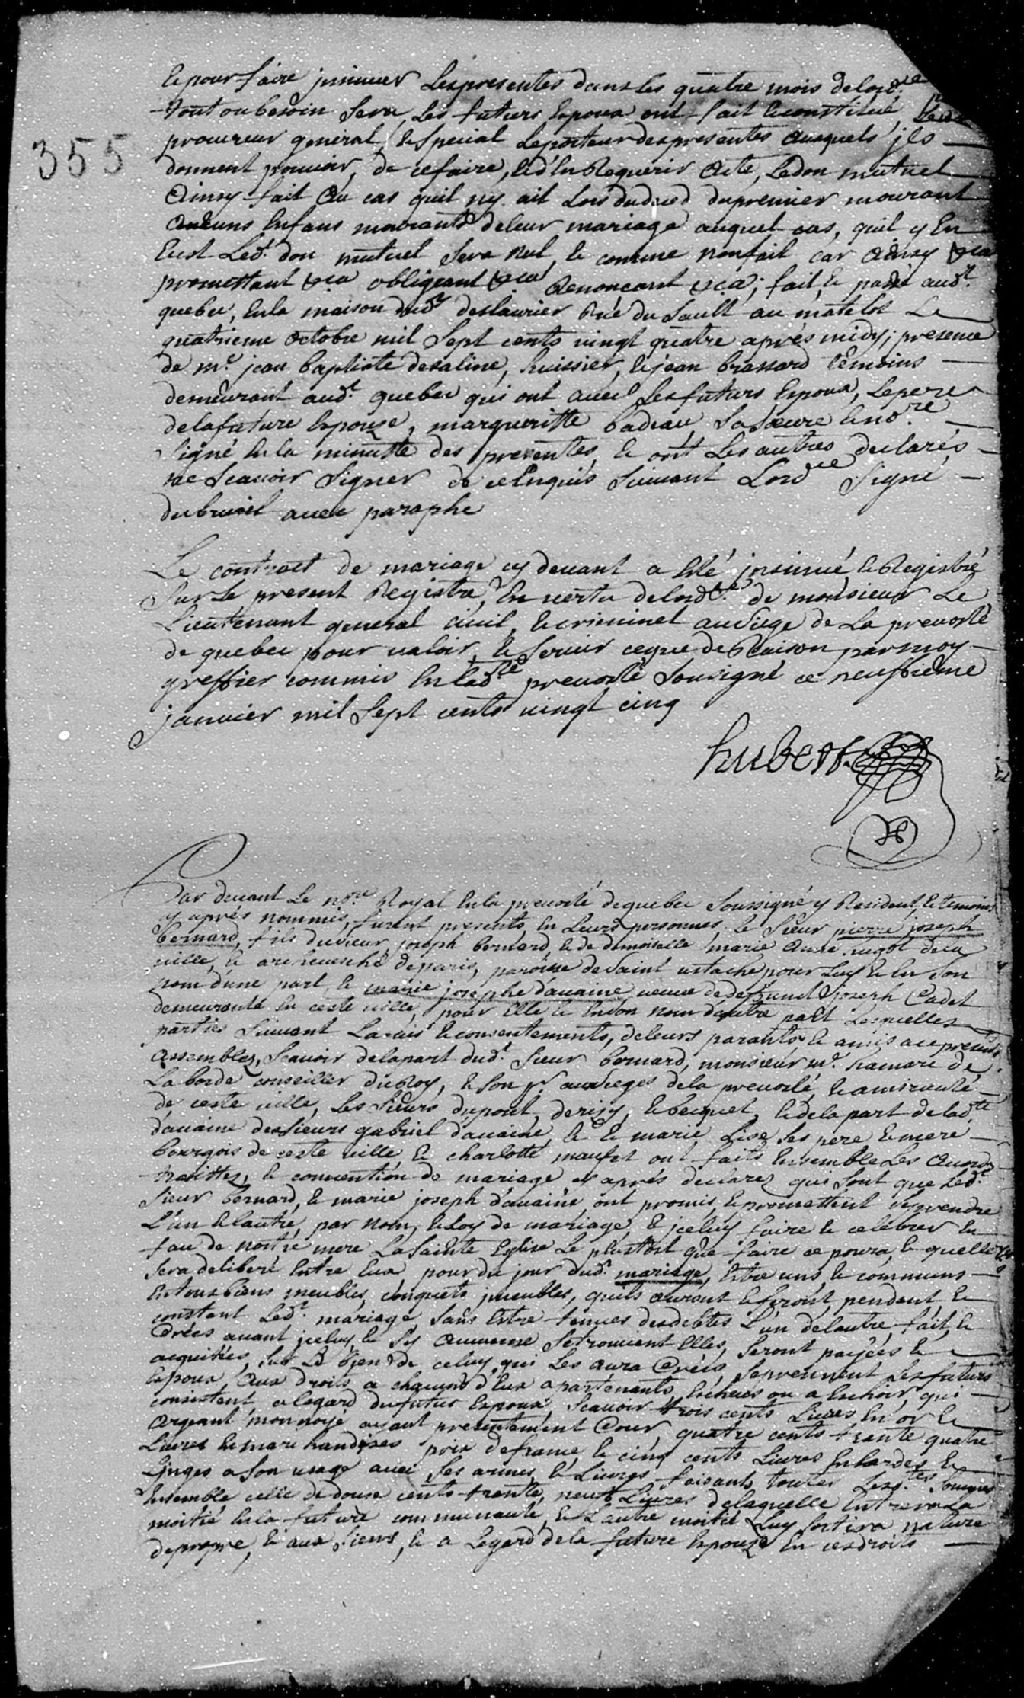 Et pour faire jnsinuer Les presentes dans les quatre mois de Lord.ce
tout ou besoin Sera, Les futurs Epoux ont fait et constitué
355
procureur general, et Special Le porteur des presentes Auxquels jls
donnent pouvoir, de ce faire, et d'En Requerir Acte, Le don mutuel
Ainsy fait Au cas quil ny ait Lors du deced du premier mourant
Aucuns Enfans mouvants de leur mariage auquel cas, quil y En
Eust Led.t don mutuel Sera nul, et comme nonfait car Ainsy &ca
promettant &ca obligeant &ca Renonçant &ca; fait, et passé aud.t
quebec, En la maison dud.t deslaurier Rue du Sault au matelot Le
quatrieme Octobre mil Sept cents vingt quatre après midy, presence
de m.e jean baptiste desaline, huissier, et jean brassard têmoins
demeurant aud.t quebec qui ont avec Les futurs Epoux, Le pere
de la future Epouse, margueritte badeau Sa Soeure et no.re
Signé En la minutte des presentes, et ont Les autres declarés
ne Scavoir Signer de ce Enquis Suivant Lord.ce Signé
dubreuil avec paraphe
Le contract de mariage cy devant a Eté jnsinué et Registré
Sur Le present Registre, En vertu de Lord.ce de monsieur Le
Lieutenant general civil, et criminel au Siege de La prevosté
de quebec pour valoir, et Servir ce que de Raison par moy
greffier commis En lad.te prevosté Soussigné ce neufvieme
janvier mil Sept cents vingt cinq
hubert
Par devant Le no.re Royal En la prevosté de quebec Soussigné y Resident, et temoins
cy après nommés, furent presents, En Leurs personnes, Le Sieur pierre joseph
bernard, fils du Sieur joseph bernard, et de demoiselle marie Anne de la
ville, et archeveché de paris, paroisse de Saint ustache pour Luy et En Son
nom d'une part, et marie josephe davaine veuve de deffunt Joseph Cadet
demeurante En ceste ville, pour Elle et En Son nom d'autre part Lesquelles
parties Suivant Lavis et consentements, de leurs parants, et amis ace presents
Assemblez, Scavoir de la part dud.t Sieur bernard, monsieur m.e hamare de
La borde Conseiller du Roy, et Son p.r aux sieges de la prevosté, et amirauté
de ceste ville, Les Sieurs dupont, derisy, et becquet, et de la part de lad.te
davaine des Sieurs gabriel davaine, et marie Lise Ses pere et mere
bourgois de ceste ville et charlotte maufet ont faits Ensemble Les Accords
traittes, et convention de mariage cy après declarez que Sont que Led.t
Sieur bernard, et marie joseph davaine, ont promis, et promettent Se prendre
L'un et L'autre par nom, et Loy de mariage et jceluy faire et celebrer En
face de nostre mere La Sainte Eglise Le plustost que faire ce poura, et quelle
Sera deliberé Entre Eux, pour du jour dud.t mariage, Estre uns, et communs
En tous biens meubles, conquets jmeubles, quils Auront et feront pendant, et
constant Led.t mariage Sans Estre tenues des debtes L'un de lautre fait, et
Créés avant jceluy, et Sy Aucunne Se trouvent Elles, Seront payées et
acquitées, Sur Les bien de celuy qui Les Aura Créés, Se prennent Les futurs
Epoux, Aux droits a chacun d'Eux apartenants, Echeus ou a Echoir, qui
consistent, a Legard du futur Epoux Scavoir trois cents Livres En or et
Argeant monnoyé ayant presentement Cour, quatre cents trente quatre
Livres En marchandises prix de france, et cinq cents Livres En hardes, et
Linges a Son usage avec Ses armes, et Livres, faisants toutes Lesd.tes Sommes
Ensemble celle de douze cents trente neuf Livres de laquelle Entrera La
moitié En la future communauté, et L'autre moitié Luy Sortira nature
de propre, et aux Siens, et a Legard de la future Epouze En ces droits